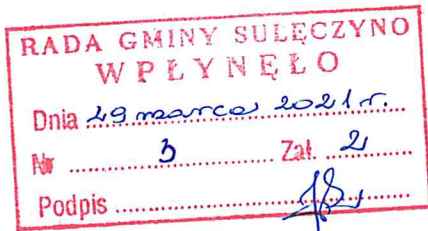 RADA GMINY SULĘCZYNO
WPŁYNĘŁO
Dnia 29 marca 2021 r.
Nr 3 Zał. 2
Podpis